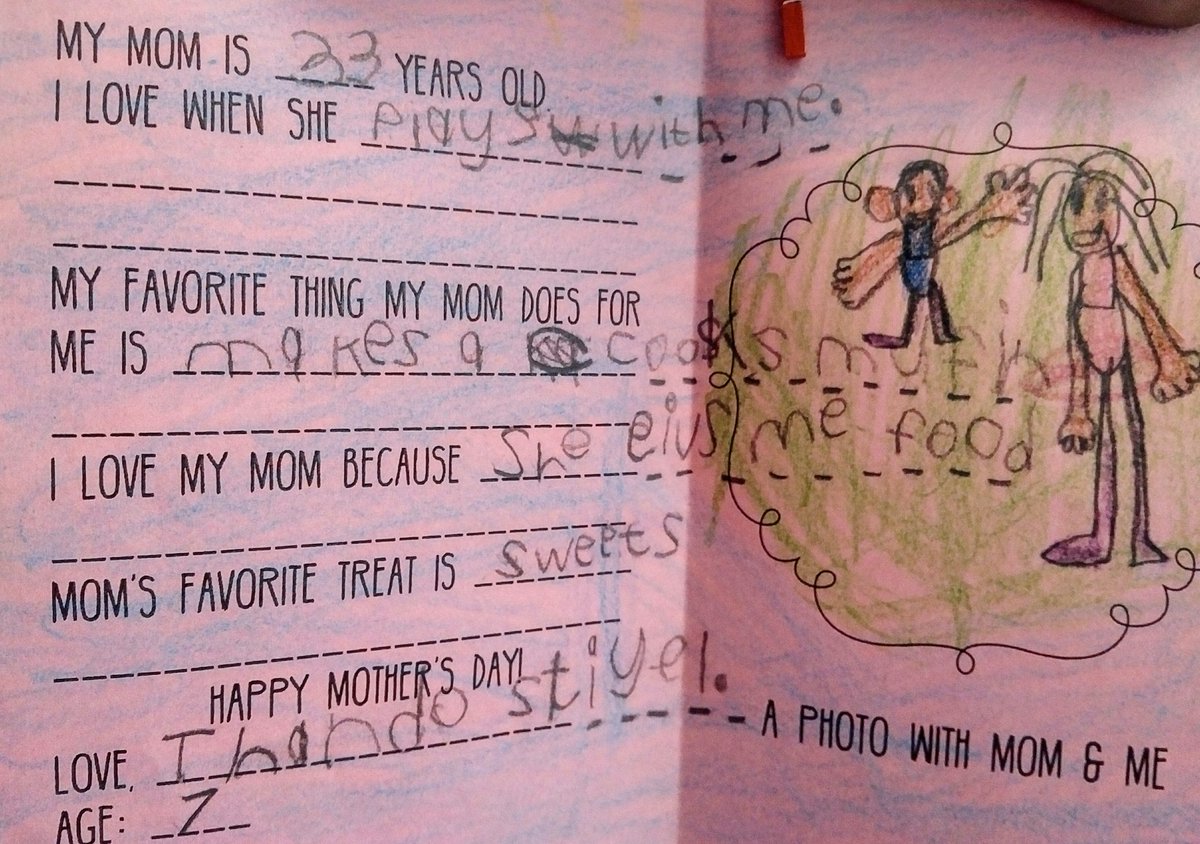 MY MOM IS 33 YEARS OLD.
I LOVE WHEN SHE plays with me.
MY FAVORITE THING MY MOM DOES FOR
ME IS makes a cooks mufin
I LOVE MY MOM BECAUSE She eivs me food
MOM'S FAVORITE TREAT IS sweets
HAPPY MOTHER'S DAY!
LOVE, Thando stiyel.
AGE: 7
A PHOTO WITH MOM & ME